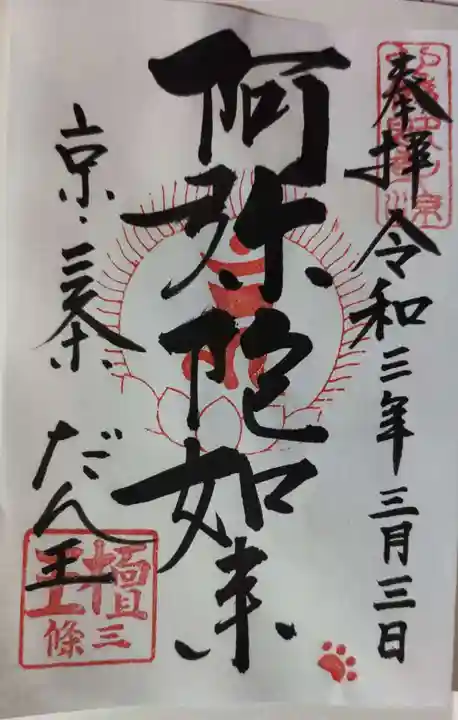 奉拝 令和三年三月三日
阿弥陀如来
京・三条
だん王
檀王
三條